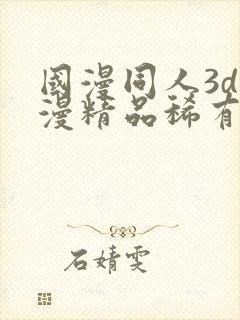 國漫同人3d
漫精品稀有
石婧雯